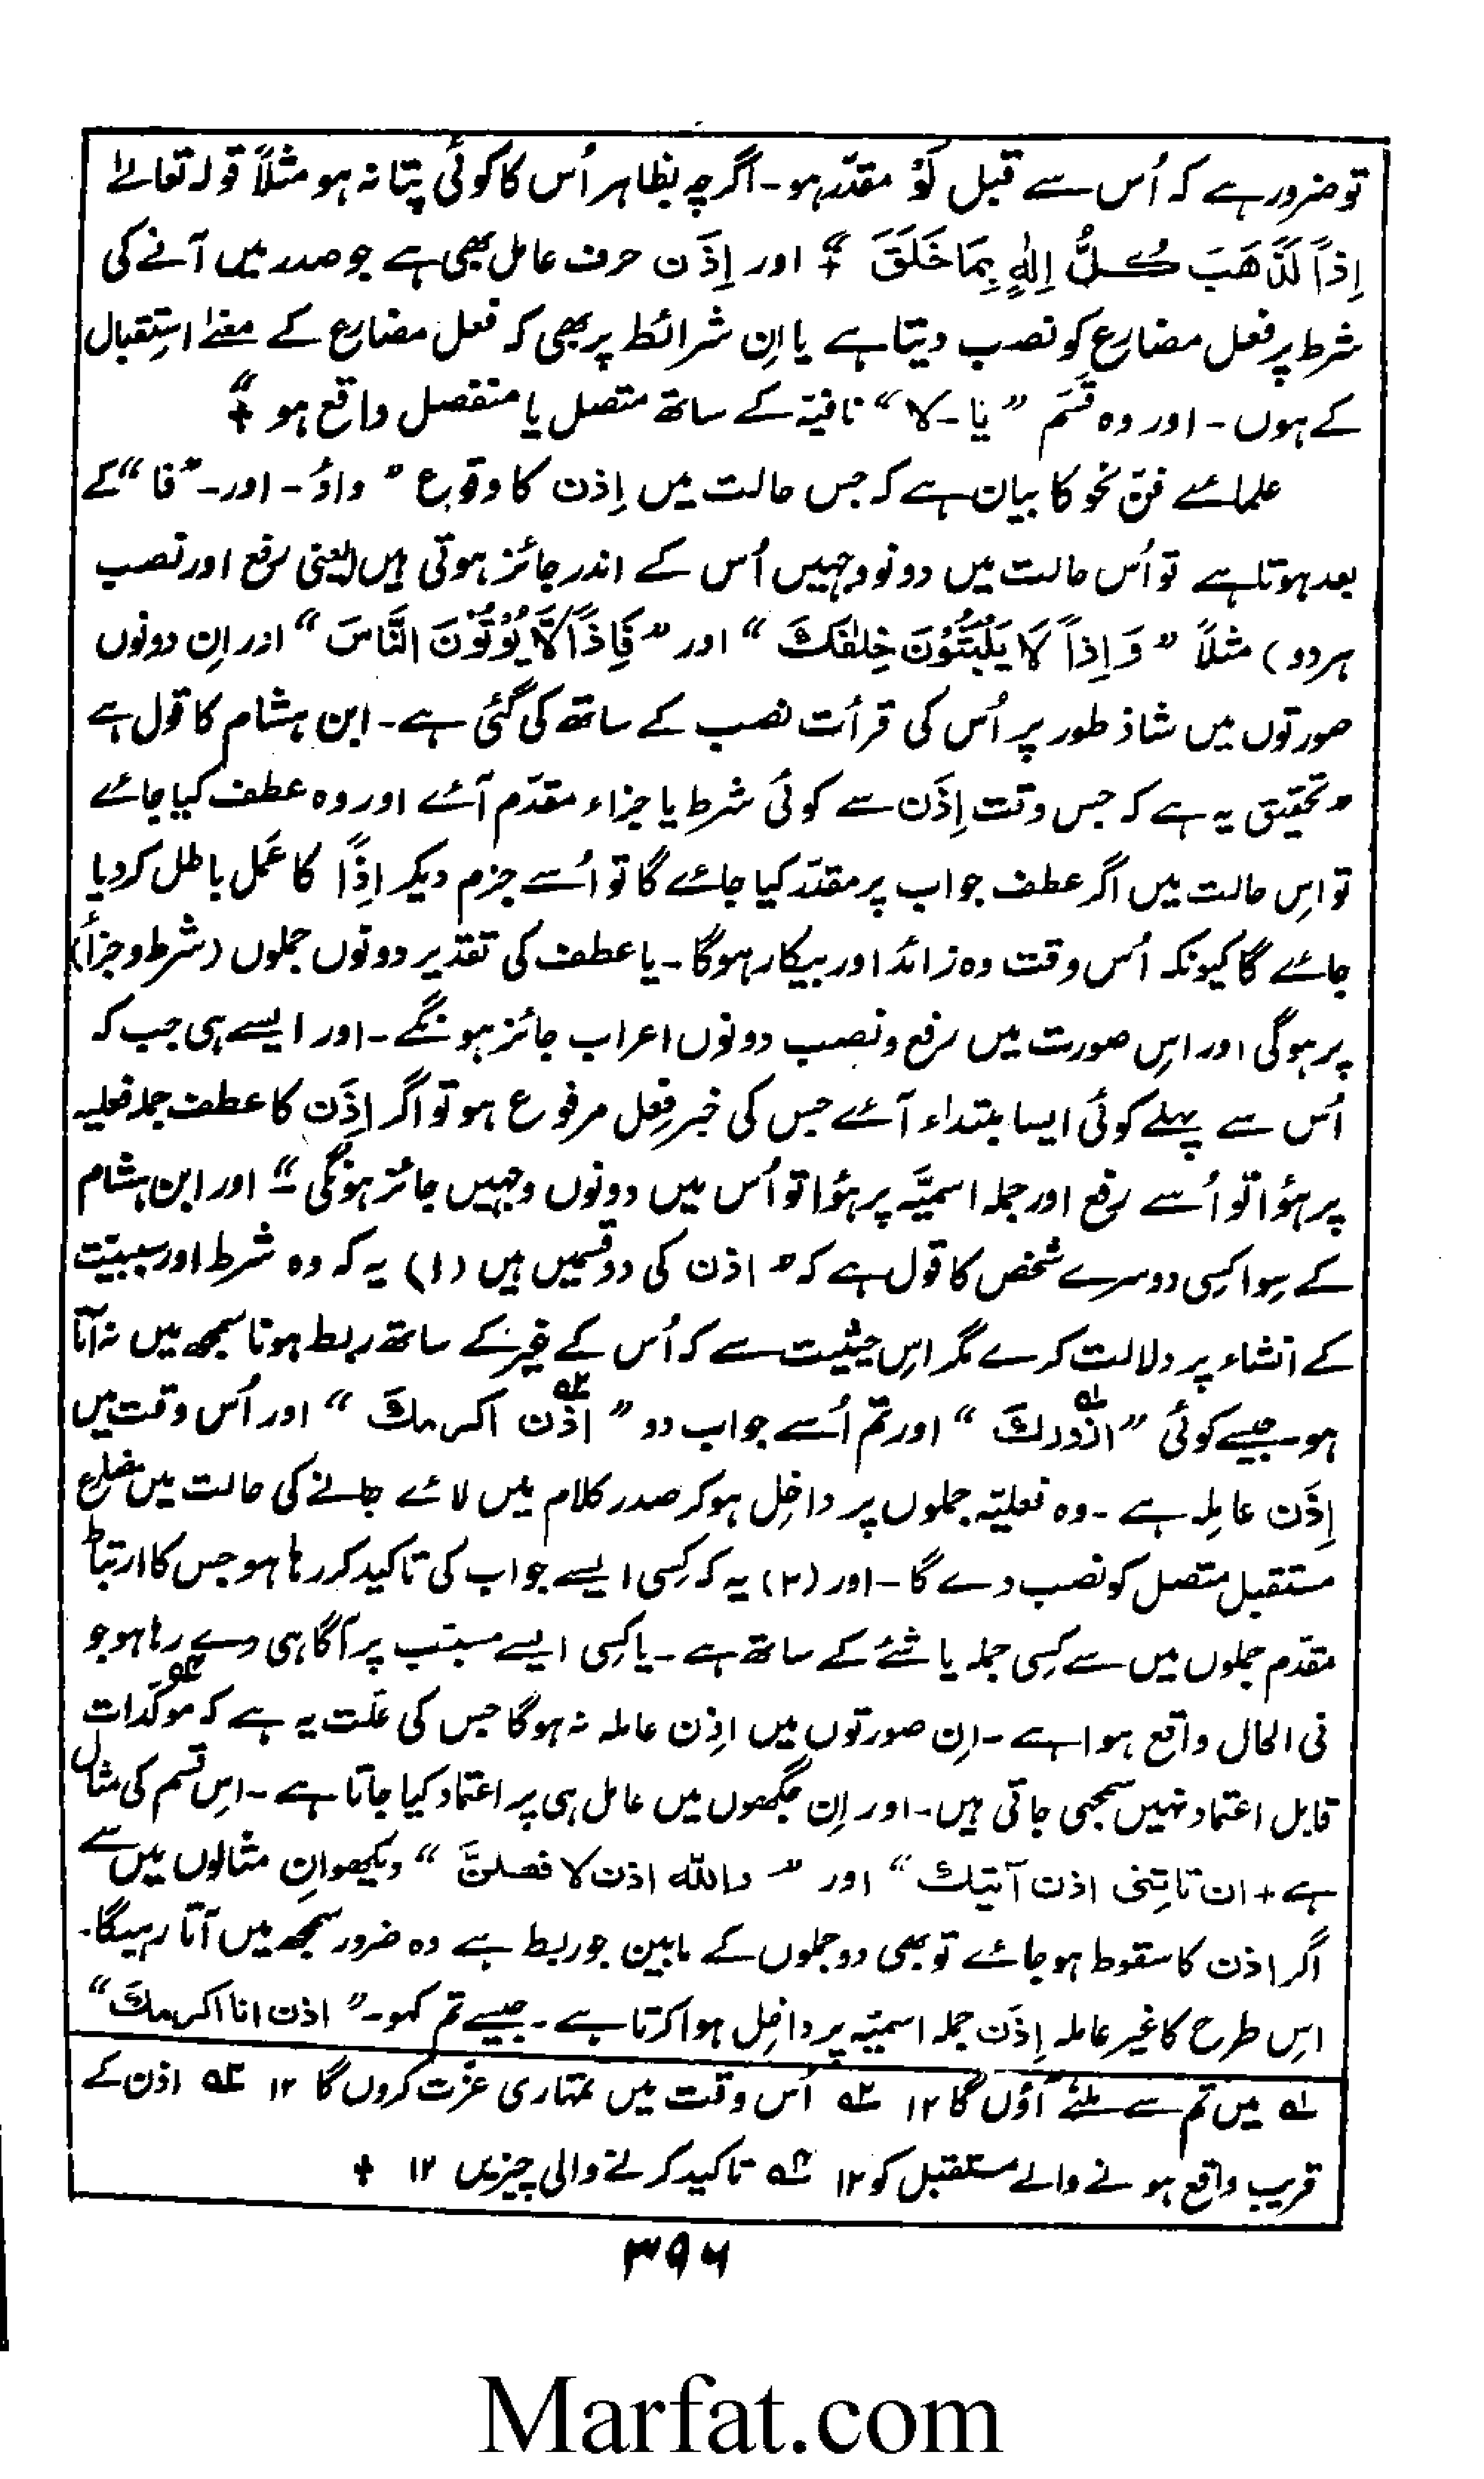 تو ضرور ہے کہ اُس سے قبل لَوْ مقدّر ہو۔ اگرچہ بظاہر اُس کا کوئی پتا نہ ہو مثلاً قولہ تعالےٰ
اِذاً لَّذَهَبَ كُلُّ اِلٰهٍ بِمَا خَلَقَ“ + اور اِذَن حرف عامل بھی ہے جو صدر میں آنے کی
شرط پر فعل مضارع کو نصب دیتا ہے یا اِن شرائط پر بھی کہ فعل مضارع کے معنےٰ استِقبال
کے ہوں۔ اور وہ قَسَم ”یَا۔ لا“ نافیۃ کے ساتھ متصل یا منفصل واقع ہو“ +
علمائے فنّ نحو کا بیان ہے کہ جس حالت میں اِذن کا وقوع ”واؤ۔ اور۔ ”فا“ کے
بعد ہوتا ہے تو اُس حالت میں دونو وجہیں اُس کے اندر جائز ہوتی ہیں (یعنی رفع اور نصب
ہردو) مثلاً ”وَاِذاً لَا يَلْبَثُوْنَ خِلٰفَكَ“ اور ”فَاِذاً لَّا يُؤْتُوْنَ النَّاسَ“ اور اِن دونوں
صورتوں میں شاذ طور پر اُس کی قرأت نصب کے ساتھ کی گئی ہے۔ ابن ہشام کا قول ہے
”تحقیق یہ ہے کہ جس وقت اِذَن سے کوئی شرط یا جزاء مقدّم آئے اور وہ عطف کیا جائے
تو اِس حالت میں اگر عطف جواب پر مقدّر کیا جائے گا تو اُسے جزم دیکر اِذًا کا عَمل باطل کردیا
جائے گا کیونکہ اُس وقت وہ زائد اور بیکار ہوگا۔ یا عطف کی تقدیر دونوں جملوں (شرط و جزأ)
پر ہوگی اور اِس صورت میں رفع و نصب دونوں اعراب جائز ہونگے۔ اور ایسے ہی جب کہ
اُس سے پہلے کوئی ایسا مبتداء آئے جس کی خبر فِعل مرفوع ہو تو اگر اِذَن کا عطف جملہ فعلیہ
پر ہؤا تو اُسے رفع اور جملہ اسمیَّہ پر ہؤا تو اُس میں دونوں وجہیں جائز ہونگی“۔ اور ابن ہشام
کے سِوا کسی دوسرے شخص کا قول ہے کہ ”اذن کی دو قسمیں ہیں (۱) یہ کہ وہ شرط اور سببیّت
کے انشاء پر دلالت کرے مگر اِس حیثیت سے کہ اُس کے غیر کے ساتھ ربط ہونا سمجھ میں نہ آتا
ہو۔ جیسے کوئی ”ازورك۱ؔ“ اور تم اُسے جواب دو ”اذن۲ؔ اكرمكَ“ اور اُس وقت میں
اِذَن عامِلہ ہے۔ وہ فعلیّہ جملوں پر داخِل ہوکر صدر کلام میں لائے جانے کی حالت میں مضارع
مستقبل متصل کو نصب دے گا۔ اور (۲) یہ کہ کِسی ایسے جواب کی تاکید کر رہا ہو جس کا ارتباط
مقدّم جملوں میں سے کِسی جملہ یا شئے کے ساتھ ہے۔ یا کِسی ایسے مسبّب پر آگاہی دے رہا ہو جو
فی الحال واقع ہوا ہے۔ اِن صورتوں میں اذِن عاملہ نہ ہوگا جس کی علّت یہ ہے کہ مؤکدات
قابل اعتماد نہیں سمجھی جاتی ہیں۔ اور اِن جگھوں میں عامل ہی پر اعتماد کیا جاتا ہے۔ اِس قسم کی مثال
ہے + ان تاتِنی اذن آتیك“ اور ”واللہ اذن لافعلنَّ“ دیکھو اِن مثالوں میں سے
اگر اذن کا سقوط ہو جائے تو بھی دو جملوں کے مابین جو ربط ہے وہ ضرور سمجھ میں آتا رہیگا۔
اِس طرح کا غیر عاملہ اِذَن جملہ اسمیّہ پر داخِل ہوا کرتا ہے۔ جیسے تم کہو۔ ”اذن انا اکرمكَ“
۱ؔ میں تم سے ملنے آؤں گا ۱۲ ۲ؔ اُس وقت میں تمہاری عزّت کروں گا ۱۲ ۳ؔ اذن کے
قریب واقع ہونے والے مستقبل کو ۱۲ ۴ؔ تاکید کرنے والی چیزیں ۱۲ +
۳۹۶
Marfat.com